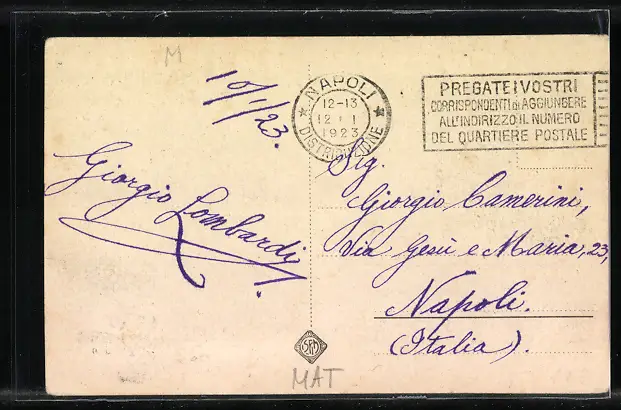 M
10/1/23.
NAPOLI
12-13
12 I
1923
DISTRIBUZIONE
PREGATE I VOSTRI
CORRISPONDENTI di AGGIUNGERE
ALL'INDIRIZZO IL NUMERO
DEL QUARTIERE POSTALE
Giorgio Lombardi
Sig.
Giorgio Camerini,
Via Gesù e Maria, 23,
Napoli.
(Italia).
MAT